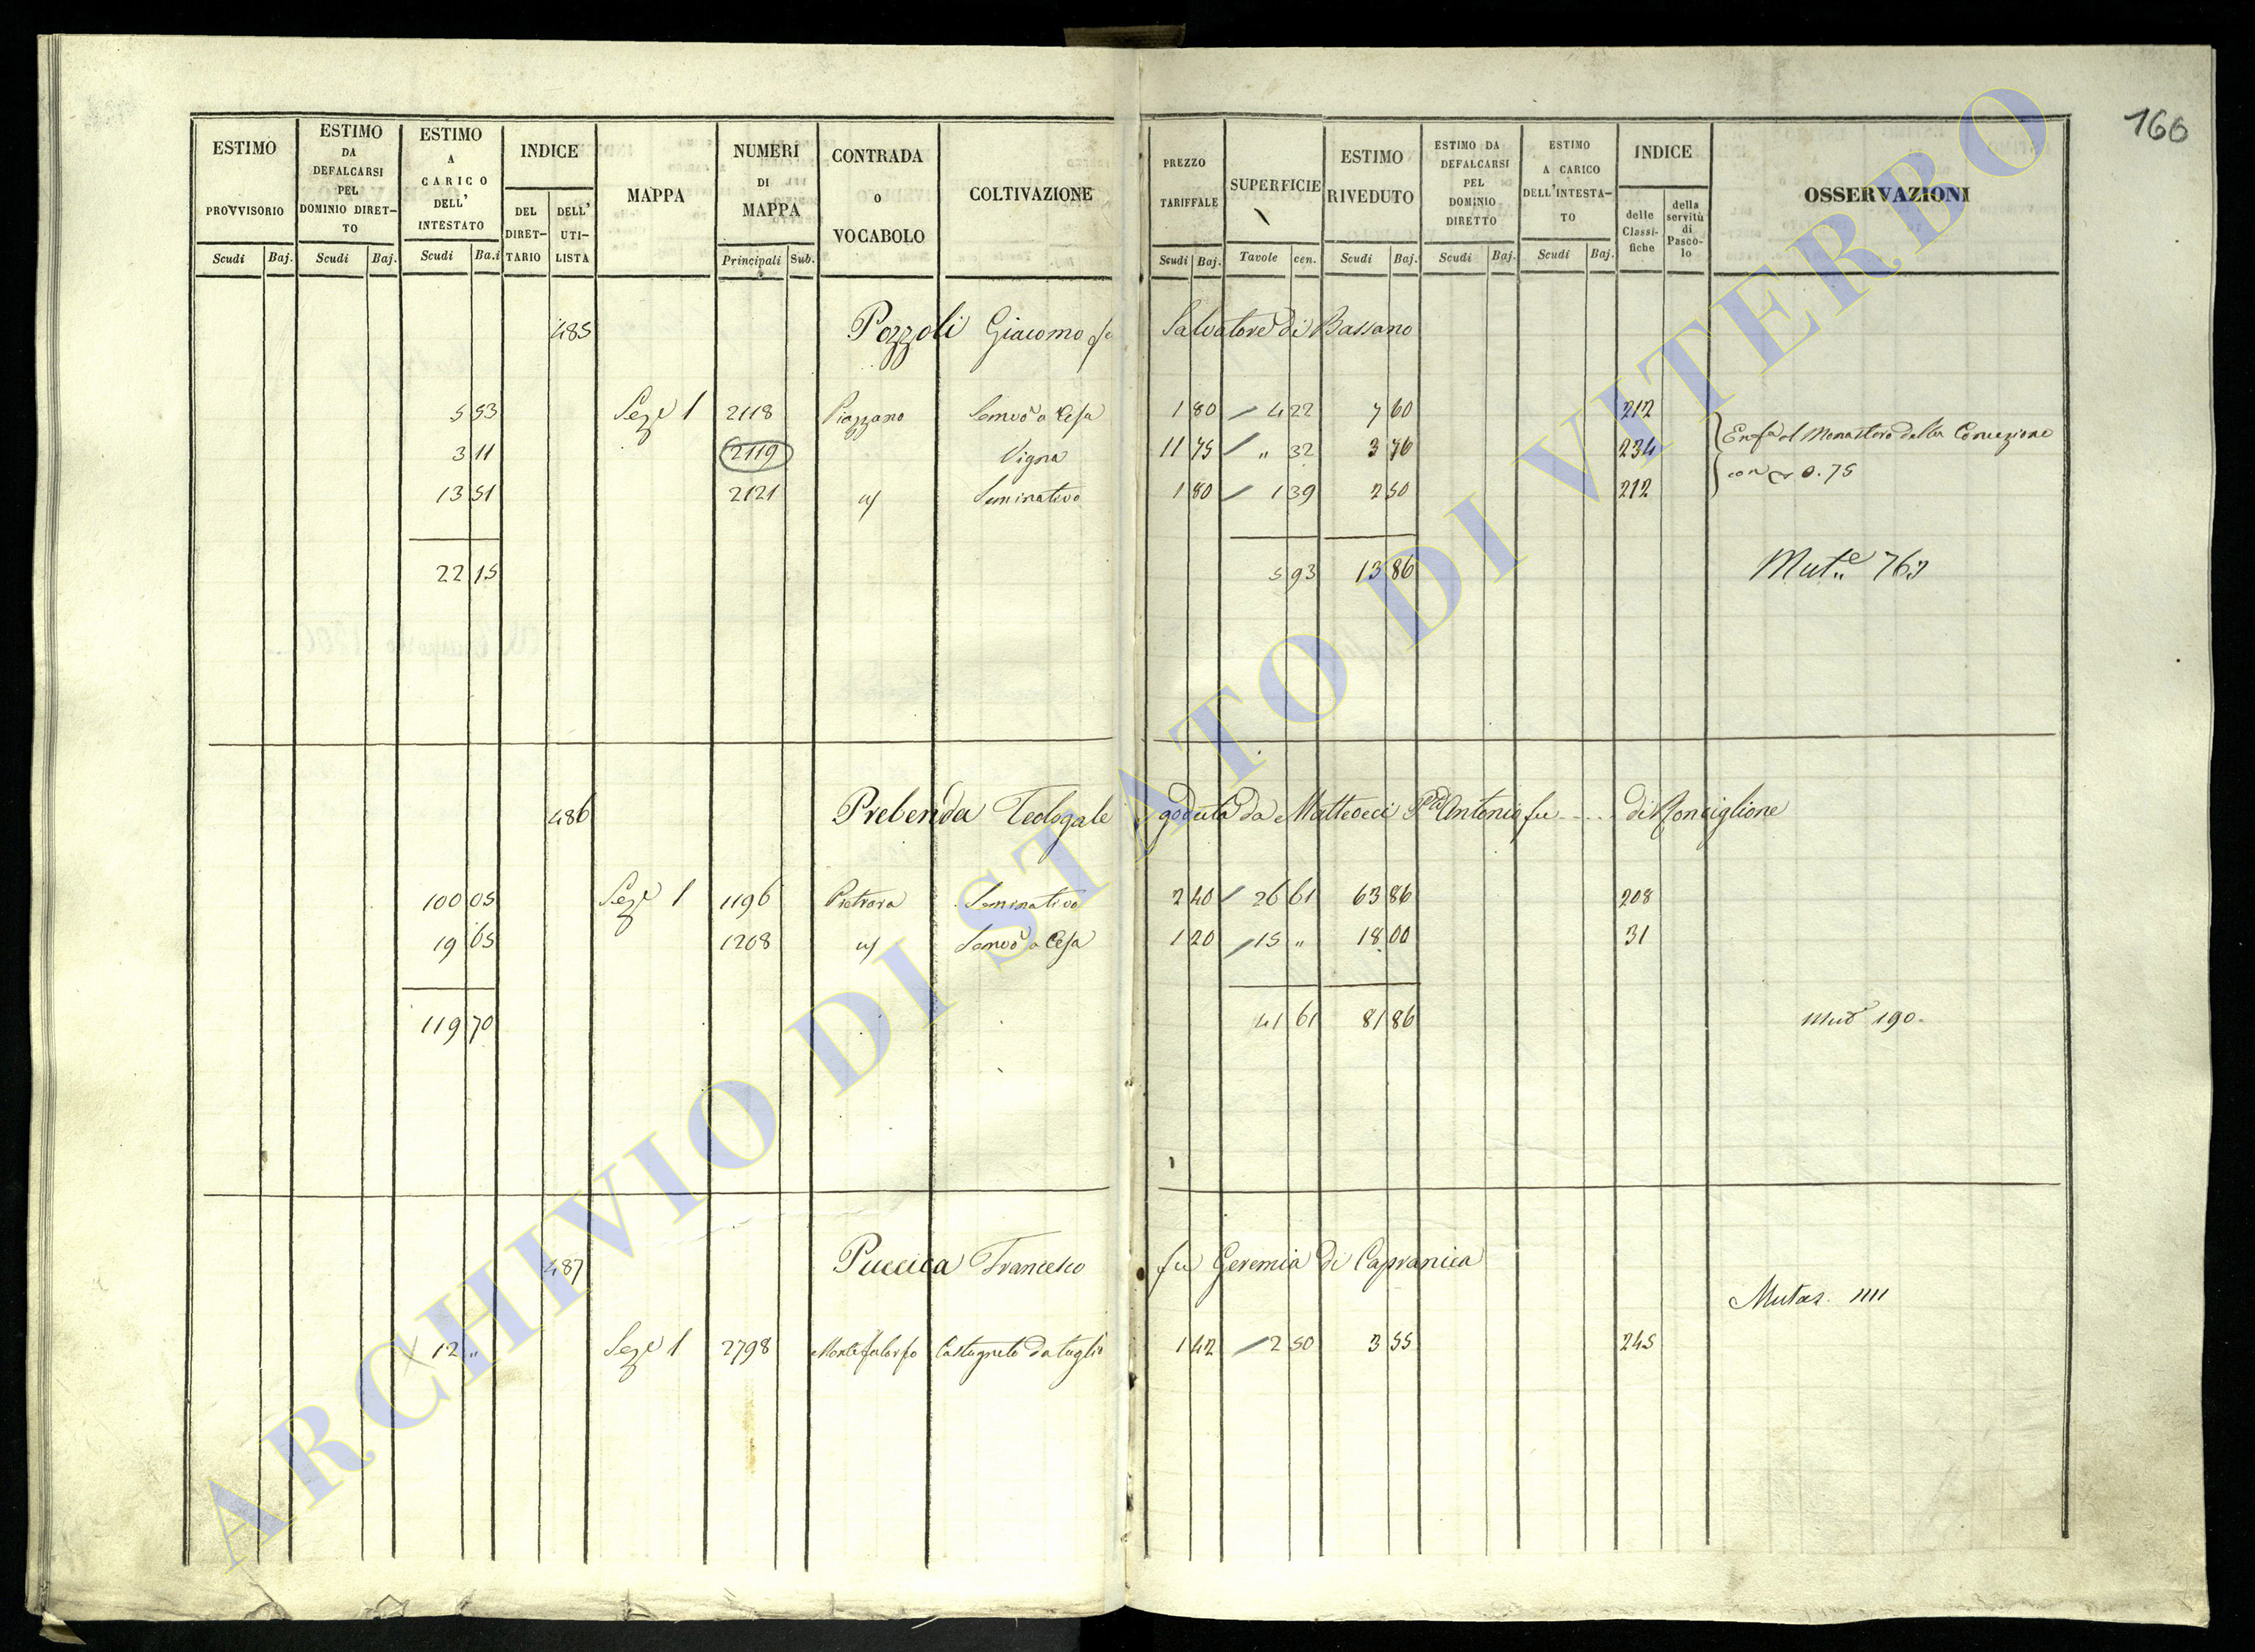 160
ESTIMO PROVVISORIO Scudi Baj.
ESTIMO DA DEFALCARSI PEL DOMINIO DIRETTO Scudi Baj.
ESTIMO A CARICO DELL' INTESTATO Scudi Ba.i
INDICE DEL DIRETTARIO DELL' UTILISTA
MAPPA
NUMERI DI MAPPA Principali Sub.
CONTRADA O VOCABOLO
COLTIVAZIONE
PREZZO TARIFFALE Scudi Baj.
SUPERFICIE Tavole cen.
ESTIMO RIVEDUTO Scudi Baj.
ESTIMO DA DEFALCARSI PEL DOMINIO DIRETTO Scudi Baj.
ESTIMO A CARICO DELL'INTESTATO Scudi Baj.
INDICE delle Classifiche della servitù di Pascolo
OSSERVAZIONI
485 Pozzoli Giacomo fu Salvatore di Bassano
5 53 Sez.e 1 2118 Piazzano Semvo a Cesa 1 80 / 4 22 7 60 212
3 11 2119 Vigna 11 75 / " 32 3 76 234 Enfa al Monastero della Concezione
13 51 2121 " Seminativo 1 80 / 1 39 2 50 212 con 0.75
22 15 5 93 13 86 Mut.e 763
486 Prebenda Teologale goduta da Matteucci Antonio fu .... di Ronciglione
100 05 Sez.e 1 1196 Pietrara Seminativo 2 40 / 26 61 63 86 208
19 65 1208 " Semvo a Cesa 1 20 / 15 " 18 00 31
119 70 41 61 81 86 190.
487 Puccica Francesco fu Geremia di Capranica
Mutaz. 1111
12 " Sez.e 1 2798 Castagneto da taglio 1 42 / 2 50 3 55 245
ARCHIVIO DI STATO DI VITERBO